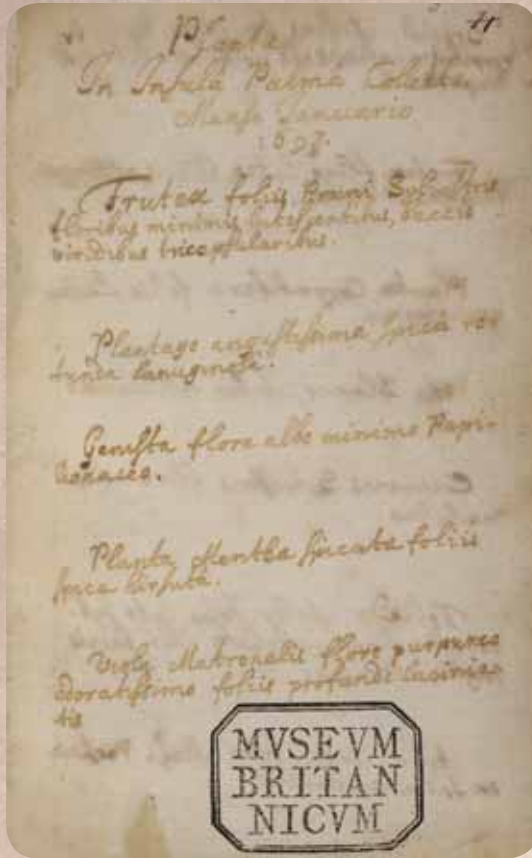 4
Plantæ
In Insula Palma Collectæ
Mense Januario
1697.
Frutex foliis Pruni Sylvestris
floribus minimis lutescentibus, baccis
viridibus tricapsularibus.
Plantago angustissima spica ro-
tunda lanuginosa.
Genista flore albo minimo Papi-
lionaceo.
Planta Mentha spicata foliis
spica hirsuta.
Viola Matronalis flore purpureo
odoratissimo foliis profunde lacinia-
tis
MVSEVM
BRITAN
NICVM